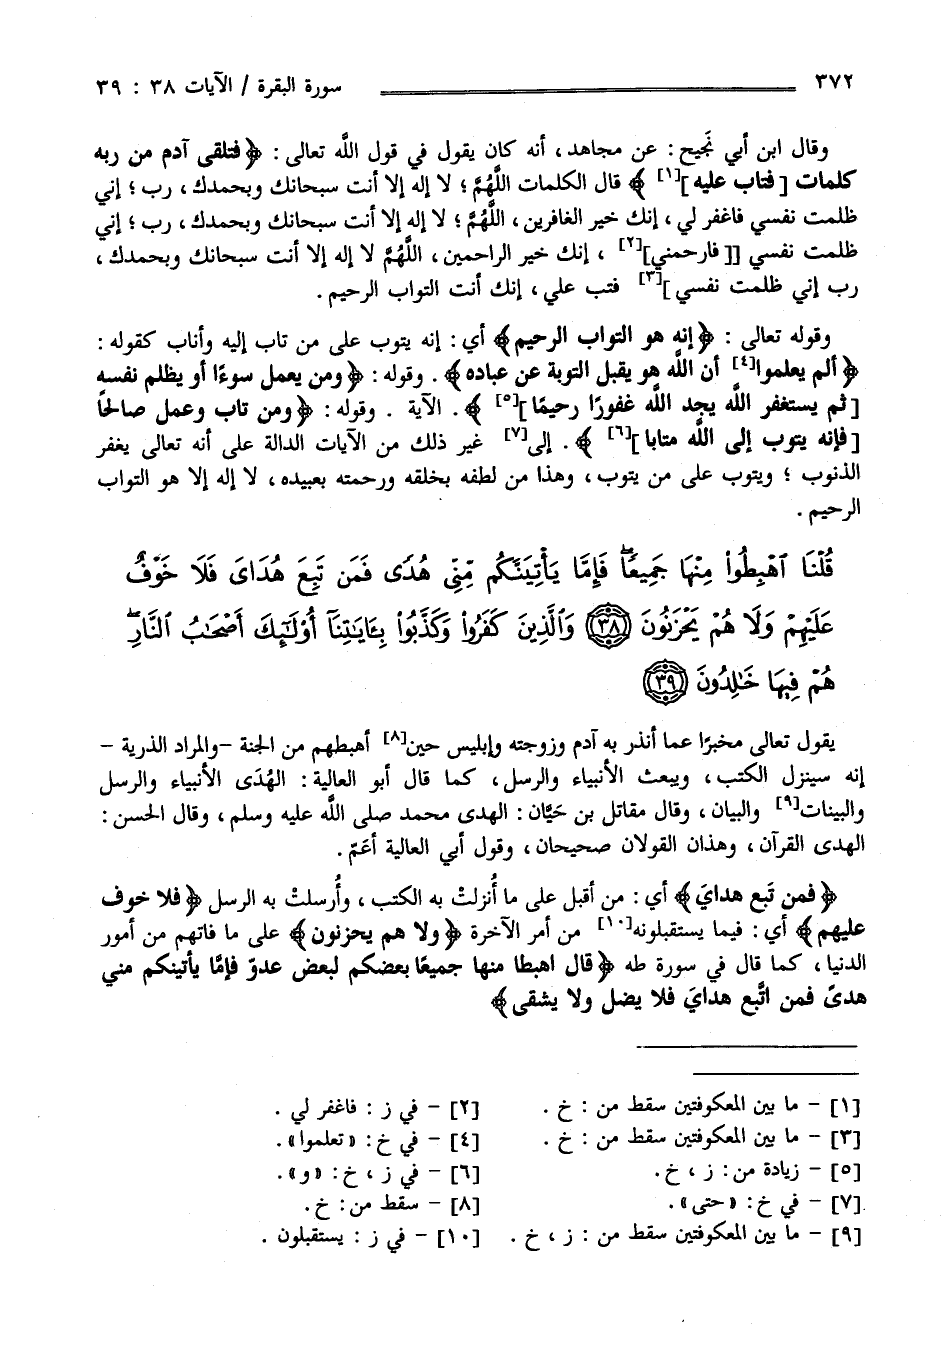 ٣٧٢ سورة البقرة / الآيات ٣٨ : ٣٩
وقال ابن أبي نَجيح : عن مجاهد ، أنه كان يقول في قول اللَّه تعالى : ﴿ فتلقى آدم من ربه
كلمات [ فتاب عليه ][١] ﴾ قال الكلمات اللَّهُمَّ ؛ لا إله إلا أنت سبحانك وبحمدك ، رب ؛ إني
ظلمت نفسي فاغفر لي ، إنك خير الغافرين ، اللَّهُمَّ ؛ لا إله إلا أنت سبحانك وبحمدك ، رب ؛ إني
ظلمت نفسي [[ فارحمني][٢] ، إنك خير الراحمين ، اللَّهُمَّ لا إله إلا أنت سبحانك وبحمدك ،
رب إني ظلمت نفسي ][٣] فتب علي ، إنك أنت التواب الرحيم .
وقوله تعالى : ﴿ إنه هو التواب الرحيم﴾ أي : إنه يتوب على من تاب إليه وأناب كقوله :
﴿ ألم يعلموا[٤] أن اللَّه هو يقبل التوبة عن عباده ﴾ . وقوله : ﴿ ومن يعمل سوءًا أو يظلم نفسه
[ ثم يستغفر اللَّه يجد اللَّه غفورًا رحيمًا ][٥] ﴾ . الآية . وقوله : ﴿ ومن تاب وعمل صالحًا
[ فإنه يتوب إلى اللَّه متابا ][٦] ﴾ . إلى[٧] غير ذلك من الآيات الدالة على أنه تعالى يغفر
الذنوب ؛ ويتوب على من يتوب ، وهذا من لطفه بخلقه ورحمته بعبيده ، لا إله إلا هو التواب
الرحيم .
قُلْنَا ٱهْبِطُوا۟ مِنْهَا جَمِيعًا ۖ فَإِمَّا يَأْتِيَنَّكُم مِّنِّى هُدًى فَمَن تَبِعَ هُدَاىَ فَلَا خَوْفٌ
عَلَيْهِمْ وَلَا هُمْ يَحْزَنُونَ ٣٨ وَٱلَّذِينَ كَفَرُوا۟ وَكَذَّبُوا۟ بِـَٔايَـٰتِنَآ أُو۟لَـٰٓئِكَ أَصْحَـٰبُ ٱلنَّارِ ۖ
هُمْ فِيهَا خَـٰلِدُونَ ٣٩
يقول تعالى مخبرًا عما أنذر به آدم وزوجته وإبليس حين[٨] أهبطهم من الجنة -والمراد الذرية -
إنه سينزل الكتب ، ويبعث الأنبياء والرسل ، كما قال أبو العالية : الهُدَى الأنبياء والرسل
والبينات[٩] والبيان ، وقال مقاتل بن حَيَّان : الهدى محمد صلى اللَّه عليه وسلم ، وقال الحسن :
الهدى القرآن ، وهذان القولان صحيحان ، وقول أبي العالية أعَمّ .
﴿ فمن تَبع هدايَ ﴾ أي : من أقبل على ما أُنزلتْ به الكتب ، وأُرسلتْ به الرسل ﴿ فلا خوف
عليهم ﴾ أي : فيما يستقبلونه[١٠] من أمر الآخرة ﴿ ولا هم يحزنون ﴾ على ما فاتهم من أمور
الدنيا ، كما قال في سورة طه ﴿ قال اهبطا منها جميعًا بعضكم لبعض عدوّ فإمَّا يأتينكم مني
هدىً فمن اتَّبع هدايَ فلا يضل ولا يشقى ﴾
[١] - ما بين المعكوفتين سقط من : خ . [٢] - في ز : فاغفر لي .
[٣] - ما بين المعكوفتين سقط من : خ . [٤] - في خ : «تعلموا» .
[٥] - زيادة من : ز ، خ . [٦] - في ز ، خ : «و» .
[٧] - في خ : «حتى» . [٨] - سقط من : خ .
[٩] - ما بين المعكوفتين سقط من : ز ، خ . [١٠] - في ز : يستقبلون .